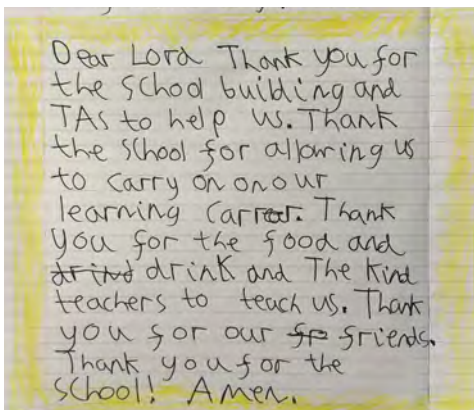 Dear Lord Thank you for
the school building and
TAs to help us. Thank
the school for allowing us
to carry on on our
learning Carrer. Thank
you for the food and
drink and The kind
teachers to teach us. Thank
you for our friends.
Thank you for the
school! Amen.